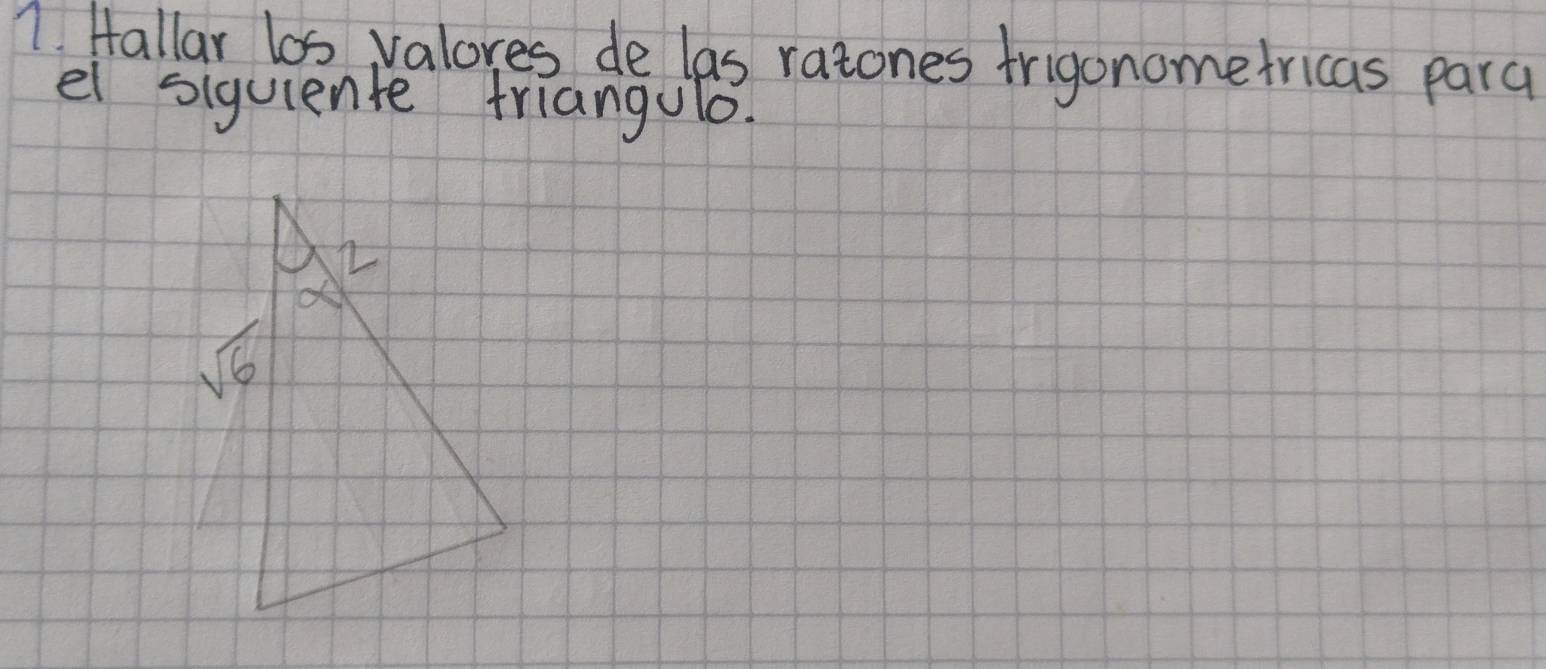 1. Hallar los valores de las razones trigonometricas para
el siguiente triangulo.
2
α
√6